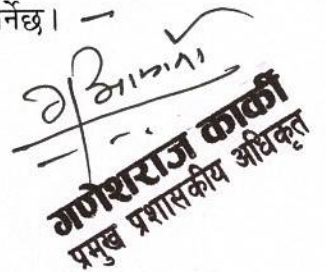 र्नेछ। —
गणेशराज कार्की
प्रमुख प्रशासकीय अधिकृत